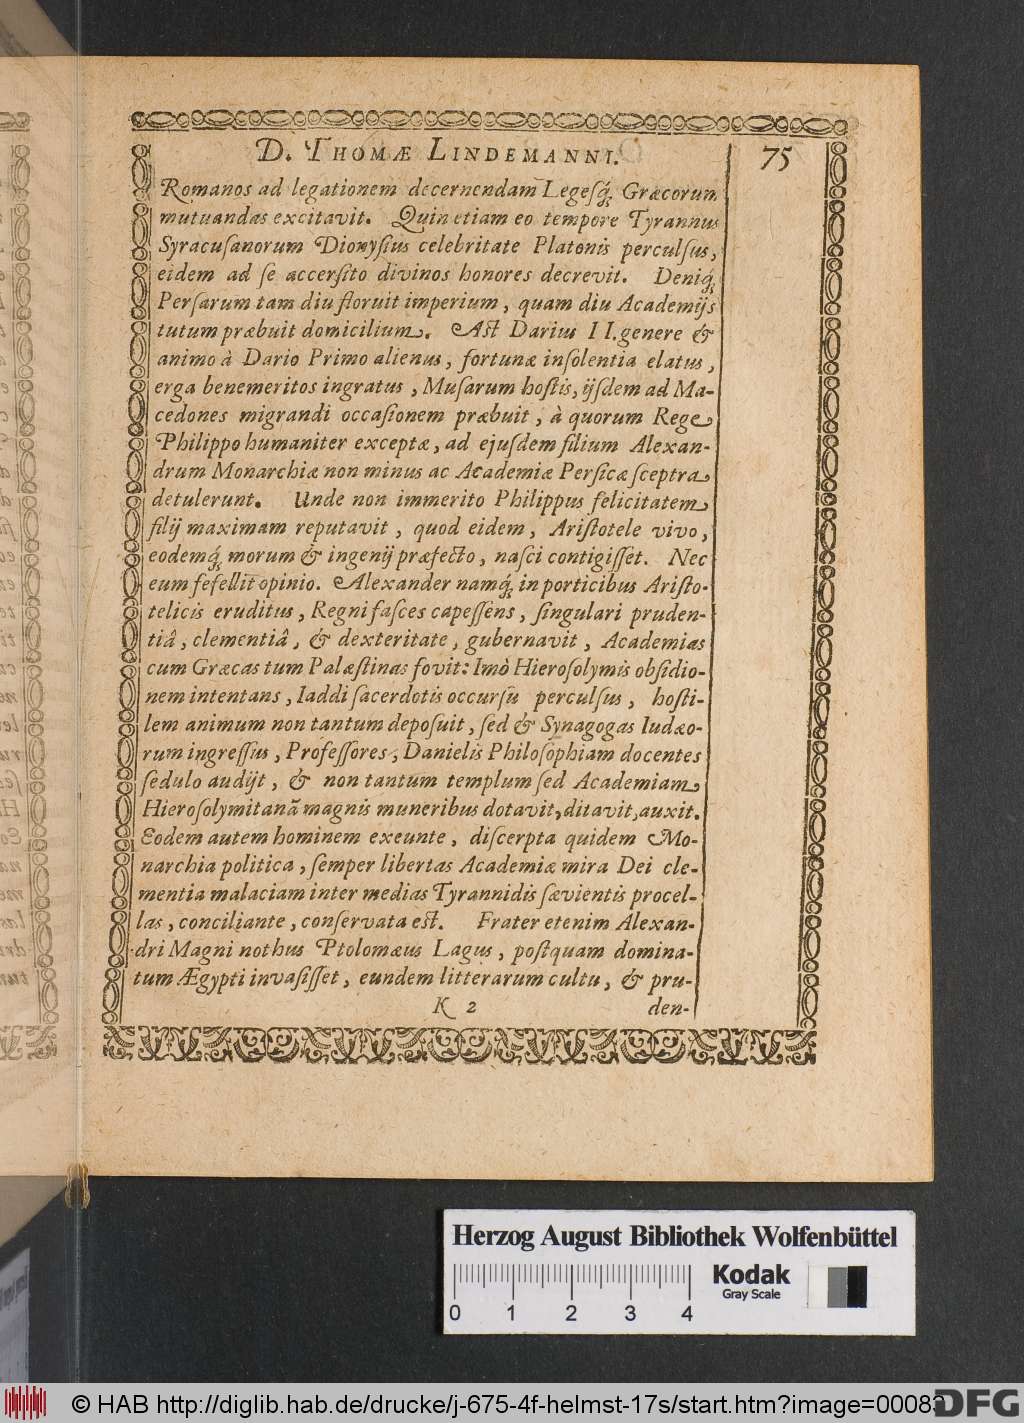 D. THOMÆ LINDEMANNI. 75
Romanos ad legationem decernendam Legesq́; Græcorum
mutuandas excitavit. Quin etiam eo tempore Tyrannus
Syracuſanorum Dionyſius celebritate Platonis perculſus,
eidem ad ſe accerſito divinos honores decrevit. Deniq́;
Perſarum tam diu floruit imperium, quam diu Academijs
tutum præbuit domicilium. Aſt Darius II. genere &
animo à Dario Primo alienus, fortunæ inſolentia elatus,
erga benemeritos ingratus, Muſarum hoſtis, ijſdem ad Ma-
cedones migrandi occaſionem præbuit, à quorum Rege
Philippo humaniter exceptæ, ad ejuſdem filium Alexan-
drum Monarchiæ non minus ac Academiæ Perſicæ ſceptra
detulerunt. Unde non immerito Philippus felicitatem
filij maximam reputavit, quod eidem, Ariſtotele vivo,
eodemq́; morum & ingenij præfecto, naſci contigiſſet. Nec
eum fefellit opinio. Alexander namq́; in porticibus Ariſto-
telicis eruditus, Regni faſces capeſſens, ſingulari pruden-
tiâ, clementiâ, & dexteritate, gubernavit, Academias
cum Græcas tum Palæſtinas fovit: Imò Hieroſolymis obſidio-
nem intentans, Iaddi ſacerdotis occurſu perculſus, hoſti-
lem animum non tantum depoſuit, ſed & Synagogas Iudæo-
rum ingreſſus, Profeſſores, Danielis Philoſophiam docentes
ſedulo audijt, & non tantum templum ſed Academiam
Hieroſolymitanã magnis muneribus dotavit, ditavit, auxit.
Eodem autem hominem exeunte, diſcerpta quidem Mo-
narchia politica, ſemper libertas Academiæ mira Dei cle-
mentia malaciam inter medias Tyrannidis ſævientis procel-
las, conciliante, conſervata eſt. Frater etenim Alexan-
dri Magni nothus Ptolomæus Lagus, poſtquam domina-
tum Ægypti invaſiſſet, eundem litterarum cultu, & pru-
K 2 den-
Herzog August Bibliothek Wolfenbüttel
Kodak
Gray Scale
0 1 2 3 4
© HAB http://diglib.hab.de/drucke/j-675-4f-helmst-17s/start.htm?image=00083
DFG